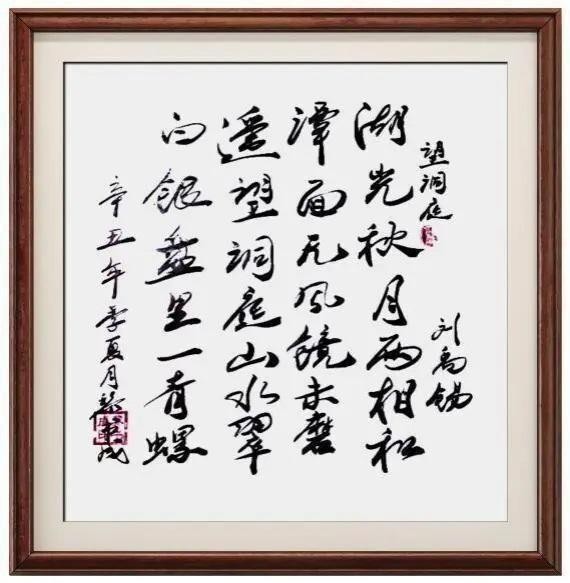 望洞庭
刘禹锡
湖光秋月两相和
潭面无风镜未磨
遥望洞庭山水翠
白银盘里一青螺
辛丑年季夏月